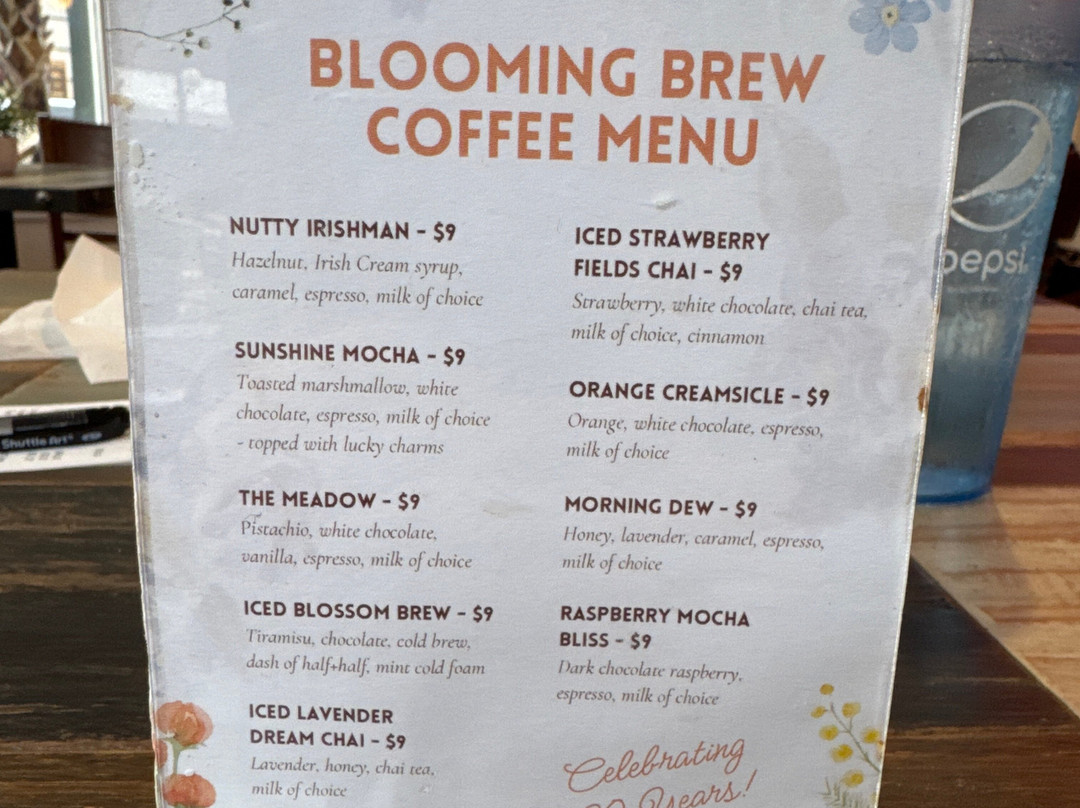 BLOOMING BREW
COFFEE MENU
NUTTY IRISHMAN - $9
Hazelnut, Irish Cream syrup,
caramel, espresso, milk of choice
SUNSHINE MOCHA - $9
Toasted marshmallow, white
chocolate, espresso, milk of choice
- topped with lucky charms
THE MEADOW - $9
Pistachio, white chocolate,
vanilla, espresso, milk of choice
ICED BLOSSOM BREW - $9
Tiramisu, chocolate, cold brew,
dash of half+half, mint cold foam
ICED LAVENDER
DREAM CHAI - $9
Lavender, honey, chai tea,
milk of choice
ICED STRAWBERRY
FIELDS CHAI - $9
Strawberry, white chocolate, chai tea,
milk of choice, cinnamon
ORANGE CREAMSICLE - $9
Orange, white chocolate, espresso,
milk of choice
MORNING DEW - $9
Honey, lavender, caramel, espresso,
milk of choice
RASPBERRY MOCHA
BLISS - $9
Dark chocolate raspberry,
espresso, milk of choice
Celebrating
Years!
pepsi
Shuttle Art